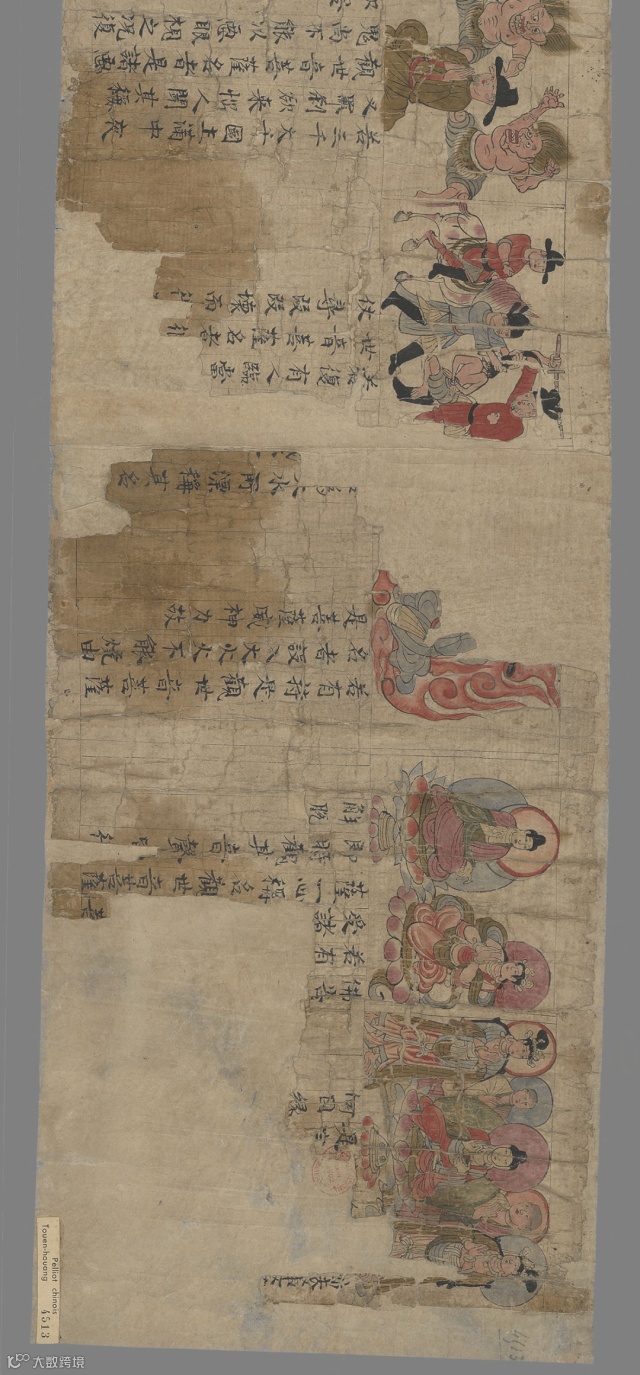 何因緣
佛告
若有
受諸
薩一心稱名觀世音菩薩
即時觀其音聲
解脫
若有持是觀世音菩薩
名者設入大火火不能燒由
是菩薩威神力故
大水所漂稱其名
若復有人臨當
世音菩薩名者彼
仗尋段段壞而
若三千大千國土滿中夜
叉羅剎欲來惱人聞其稱
觀世音菩薩名者是諸惡
鬼尚不能以惡眼視之況復
Pelliot chinois
Touen-houang
4513
大数跨境